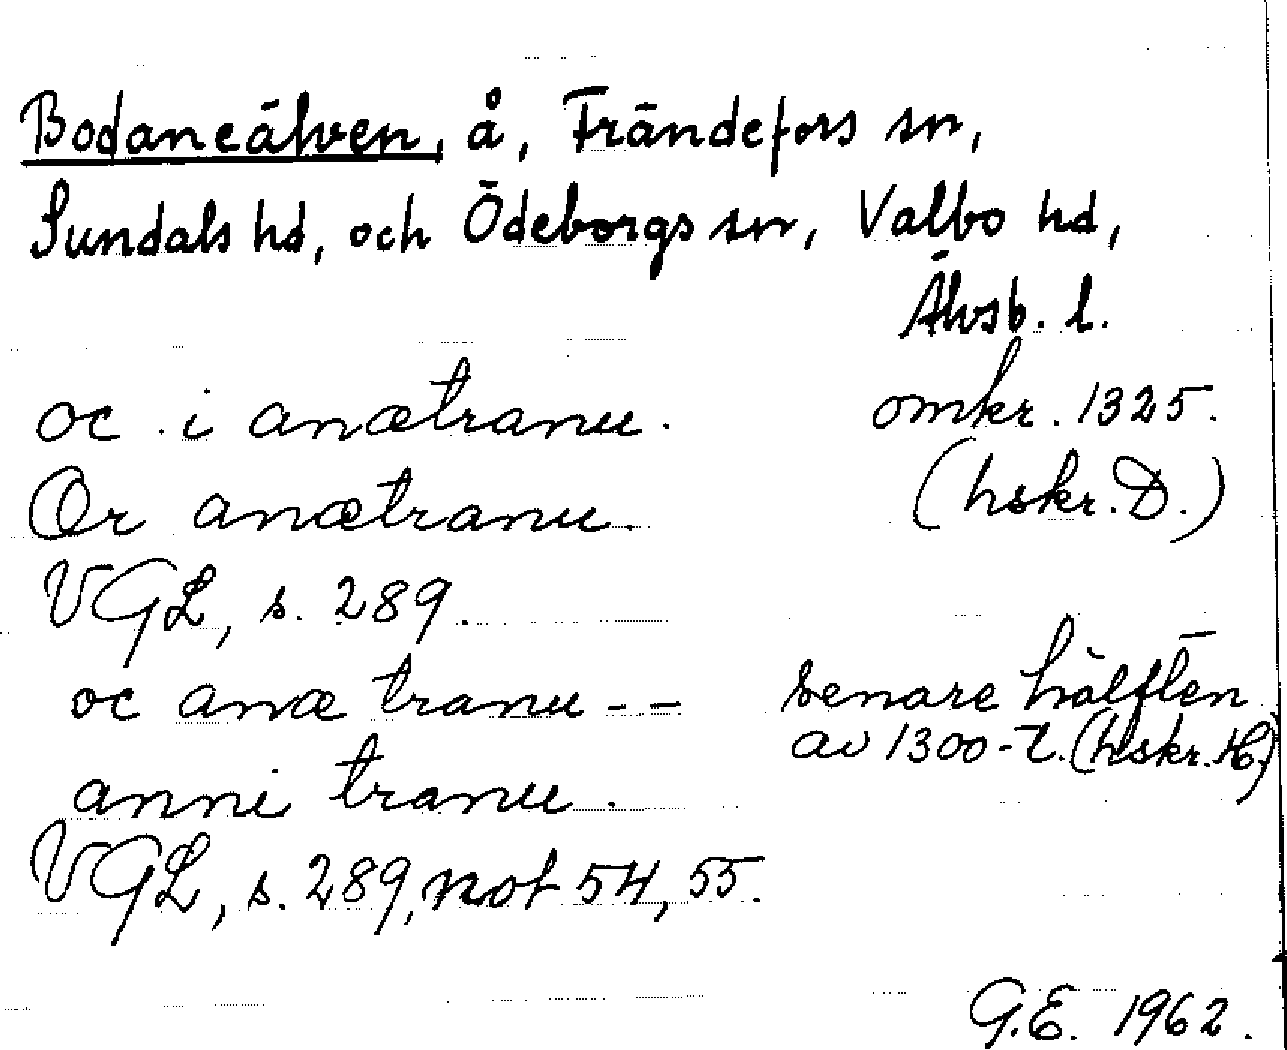 Bodaneälven, å, Frändefors sn,
Sundals hd, och Ödeborgs sn, Valbo hd,
Älvsb. l.
oc . i anætranu. omkr. 1325.
Or anætranu. (hskr. D.)
VGL, s. 289.
oc anæ tranu - - senare hälften
av 1300-t. (hskr. H.)
anni tranu.
VGL, s. 289, not 54, 55.
G.E. 1962.